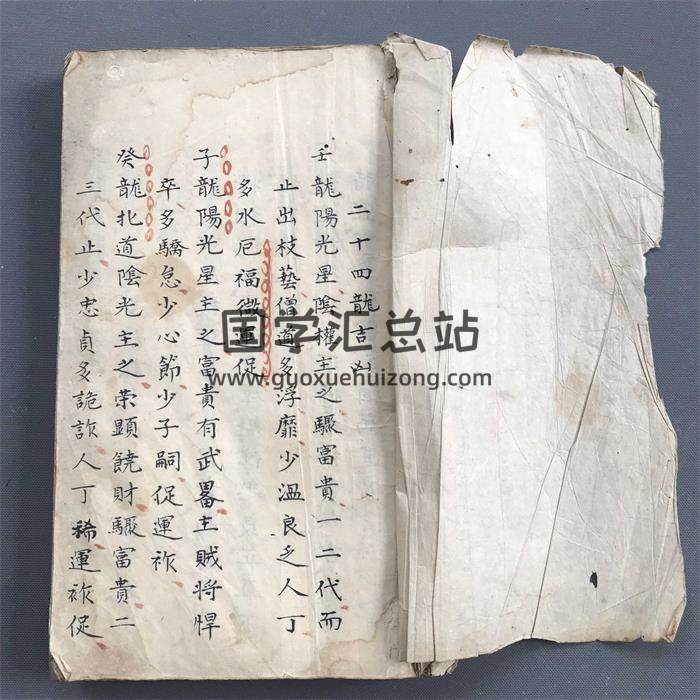 二十四龍吉凶
壬龍陽光星陰權主之驟富貴一二代而
止出枝藝僧道多浮靡少溫良乏人丁
多水厄福微運促
子龍陽光星主之富貴有武畧主賊將悍
卒多驕怠少心節少子嗣促運祚
癸龍北道陰光主之荣顕饒財驟富貴二
三代止少忠貞多詭詐人丁稀運祚促
国学汇总站
www.guoxuehuizong.com